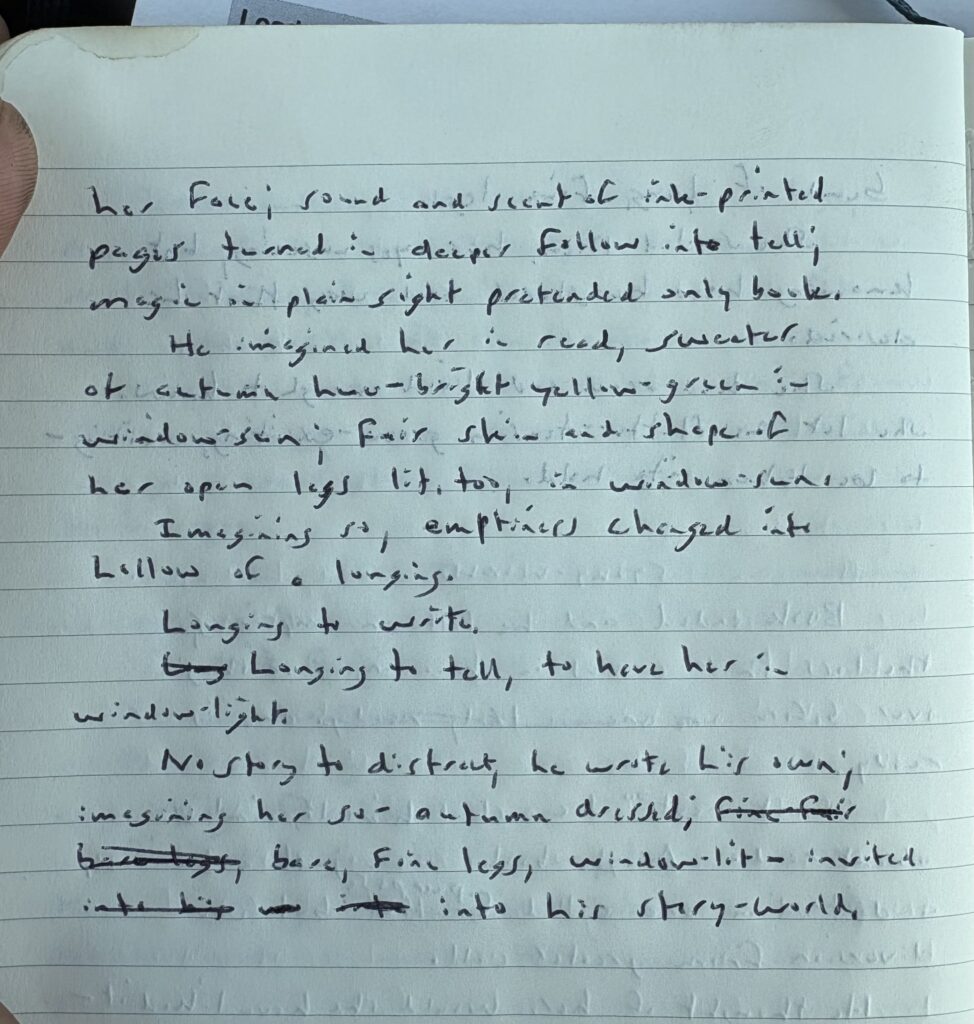 her face; sound and scent of ink-printed
pages turned in deeper follow into tell;
magic in plain sight pretended only book.
He imagined her in read, sweater
of autumn hue-bright yellow-green in
window-sun; fair skin and shape of
her open legs lit, too, in window-sun.
Imagining so, emptiness changed into
hollow of a longing.
Longing to write.
Longing to tell, to have her in
window-light.
No story to distract, he wrote his own;
imagining her so- autumn dressed; fine fair
bare legs, bare, fine legs, window-lit - invited
into his into into his story-world.